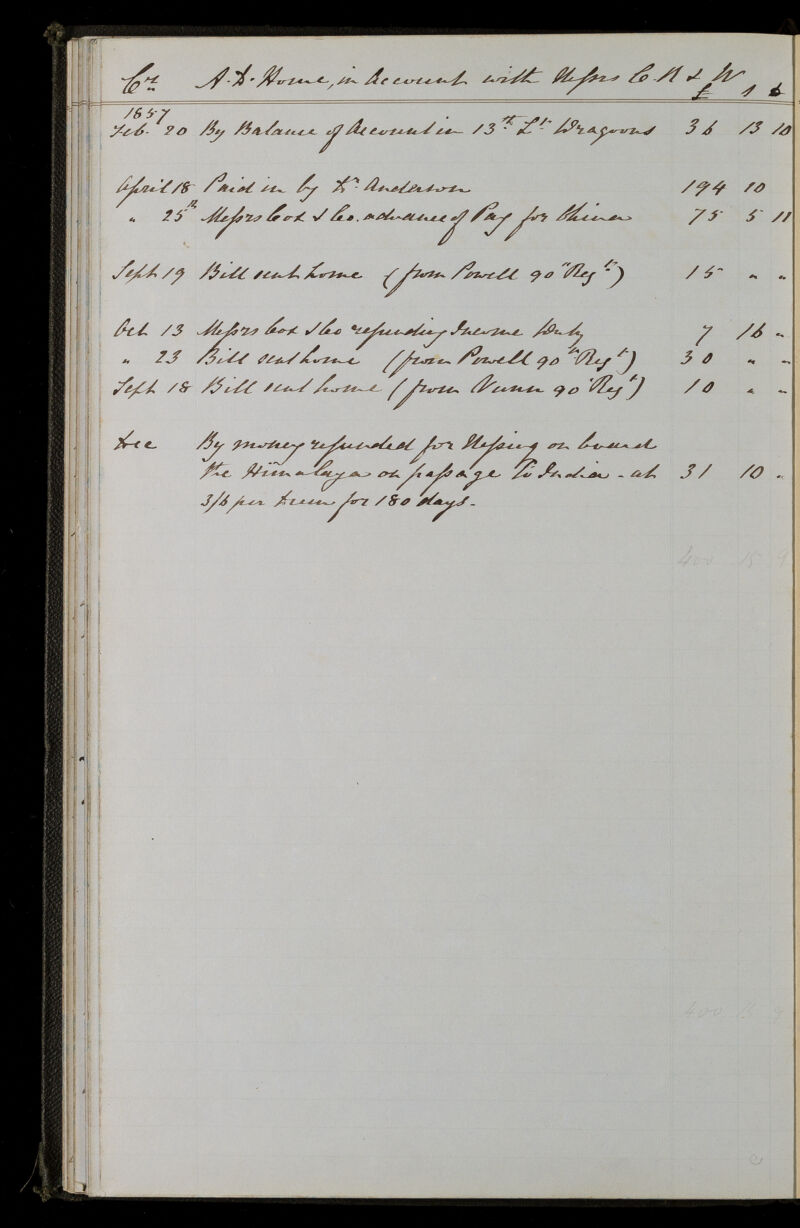 Cr. A. D. Home, in Account with Messrs C. R & W
£ s d
1857
Feb. 20 By Balance of Account in 13th Lt. Dragoons 36 13 10
April 18 Paid in by Dr. Anderson 194 10
" 25th Messrs Cox & Co. advance of Pay for China 75 5 11
Sept 19 Bill sent home (from Powell 90" Regt.) 15 " "
Oct 13 Messrs Cox & Co refunding Income Duty 7 16 "
" 23 Bill sent home (from Powell 90th Regt) 30 " "
Sept 18 Bill sent home (from Nunn 90 Regt) 10 " "
Dec By money refunded for Messing on board
the Himalaya on passage to India - at 31 10 "
3/6 per diem for 180 days.
400 15 9
400 15 9